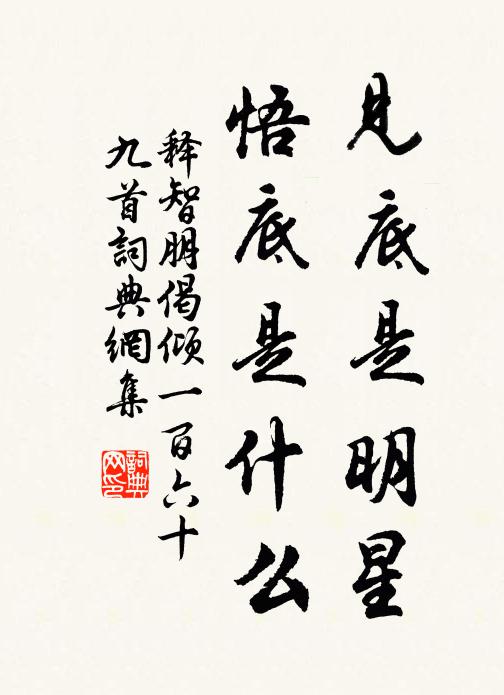 见底是明星
悟底是什么
释智朋偈倾一百六十
九首詞典網集
詞典
网印